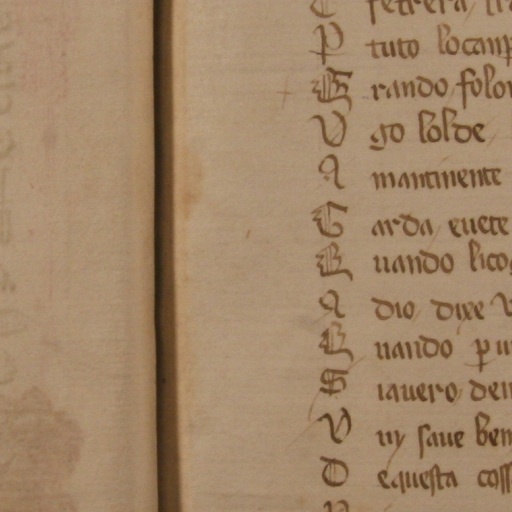 P tuto locamp
G rando folo
V go lolde
A mantinente
G arda, euete
Q uando lico
A dio, dixe V
Q uando p u
S iauero, den
V uy saue ben
D equesta coss